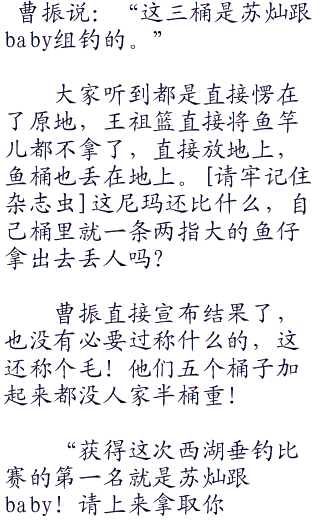 曹振说：“这三桶是苏灿跟
baby组钓的。”
大家听到都是直接愣在
了原地，王祖篮直接将鱼竿
儿都不拿了，直接放地上，
鱼桶也丢在地上。[请牢记住
杂志虫]这尼玛还比什么，自
己桶里就一条两指大的鱼仔
拿出去丢人吗？
曹振直接宣布结果了，
也没有必要过称什么的，这
还称个毛！他们五个桶子加
起来都没人家半桶重！
“获得这次西湖垂钓比
赛的第一名就是苏灿跟
baby！请上来拿取你